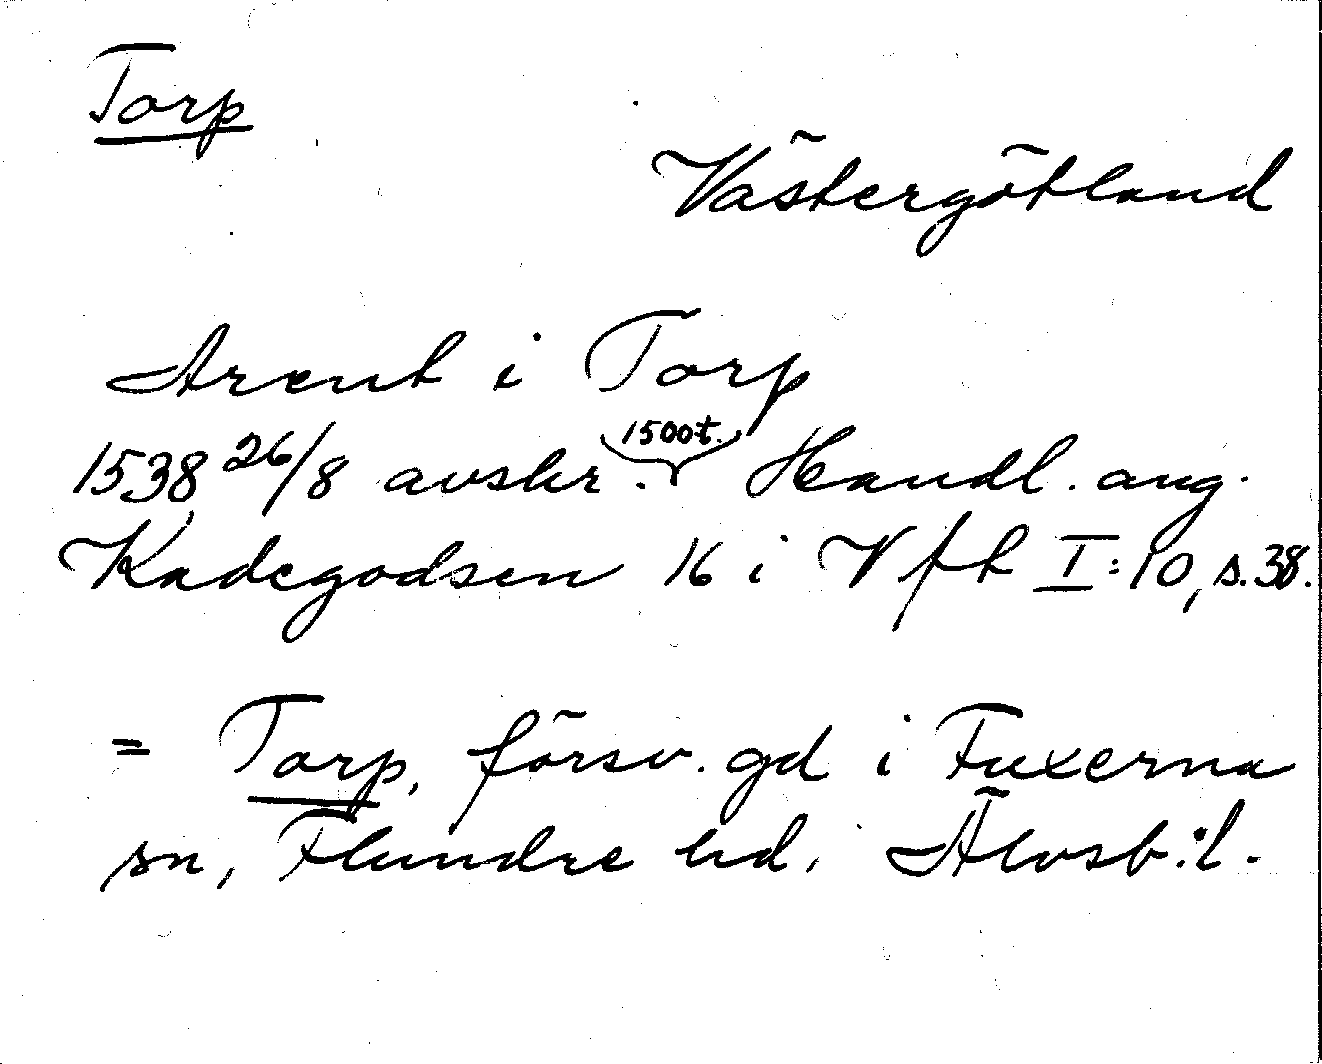 Torp
Västergötland
Arent i Torp
1538 26/8 avskr. 1500t. Handl. ang.
Kadegodsen 16 i Vfk I:10, s.38.
= Torp, försv. gd i Fuxerna
sn, Flundre hd, Älvsb.l.